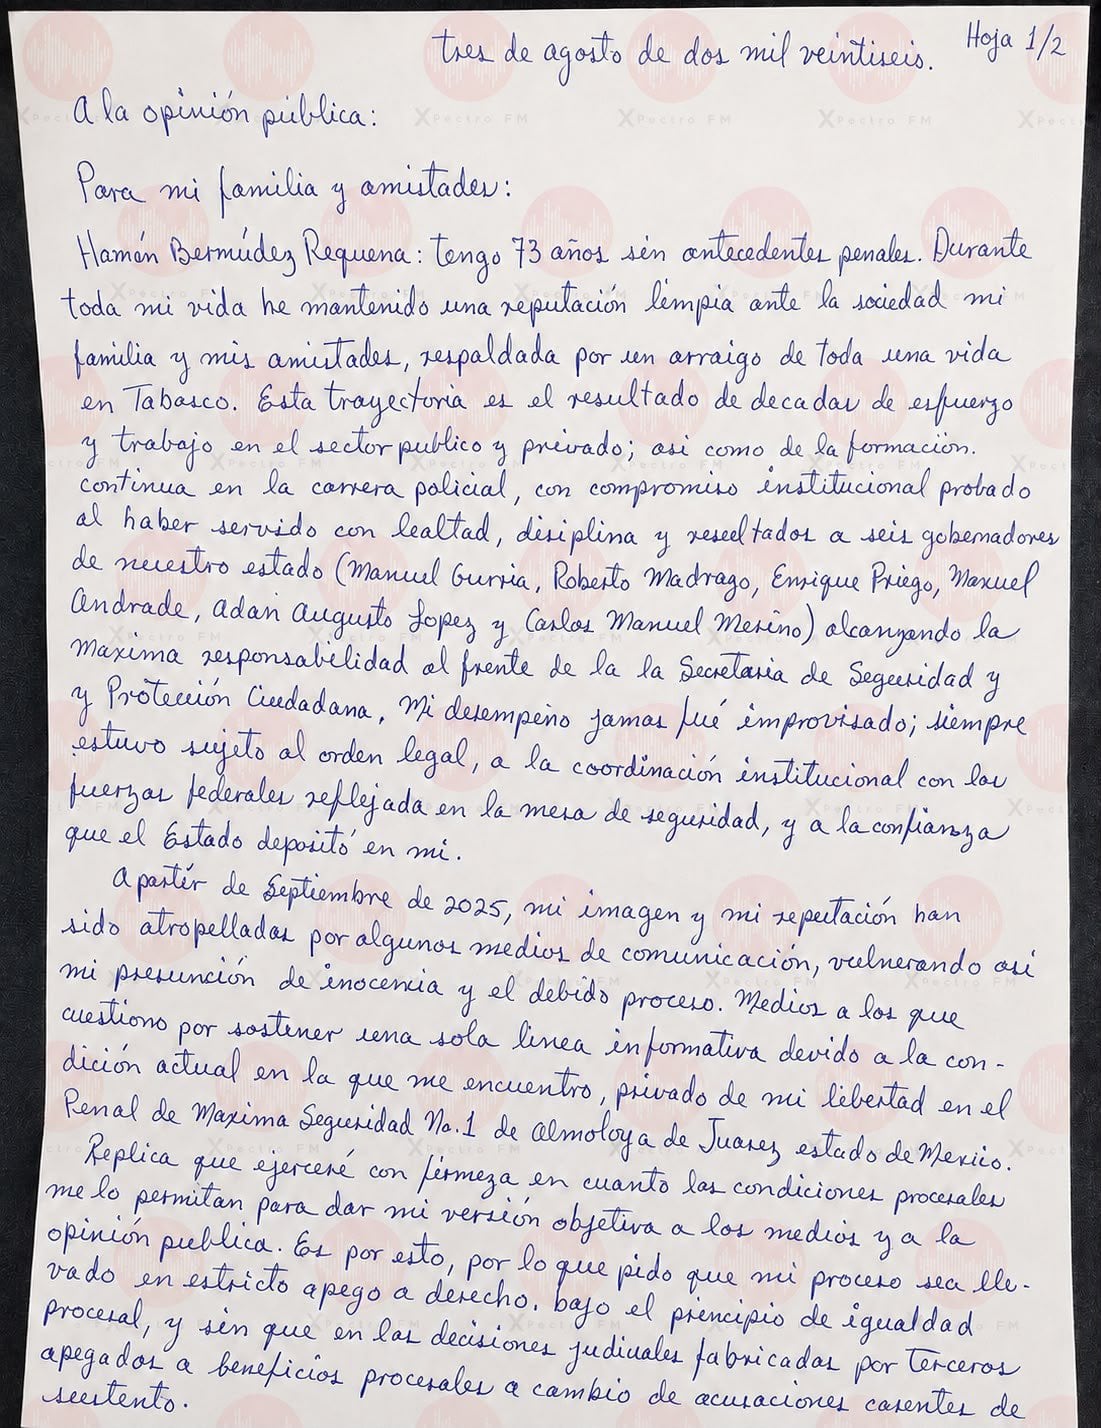 Hoja 1/2
tres de agosto de dos mil veintiseis.
A la opinión pública:
Para mi familia y amistades:
Hamán Bermúdez Requena: tengo 73 años sin antecedentes penales. Durante
toda mi vida he mantenido una reputación limpia ante la sociedad mi
familia y mis amistades, respaldada por un arraigo de toda una vida
en Tabasco. Esta trayectoria es el resultado de decadas de esfuerzo
y trabajo en el sector publico y privado; asi como de la formación.
continua en la carrera policial, con compromiso institucional probado
al haber servido con lealtad, disiplina y resultados a seis gobernadores
de nuestro estado (Manuel Gurria, Roberto Madrago, Enrique Priego, Manuel
Andrade, Adan Augusto Lopez y Carlos Manuel Merino) alcanzando la
maxima responsabilidad al frente de la la Secretaria de Seguridad y
y Protección Ciudadana. Mi desempeño jamas fué improvisado; siempre
estuvo sujeto al orden legal, a la coordinación institucional con las
fuerzas federales reflejada en la mesa de seguridad, y a la confianza
que el Estado depositó en mi.
A partir de Septiembre de 2025, mi imagen y mi reputación han
sido atropelladas por algunos medios de comunicación, vulnerando así
mi presunción de inocencia y el debido proceso. Medios a los que
cuestiono por sostener una sola linea informativa devido a la con-
dición actual en la que me encuentro, privado de mi libertad en el
Penal de Maxima Seguridad No.1 de Almoloya de Juarez estado de Mexico.
Replica que ejerceré con firmeza en cuanto las condiciones procesales
me lo permitan para dar mi versión objetiva a los medios y a la
opinión publica. Es por esto, por lo que pido que mi proceso sea lle-
vado en estricto apego a derecho. bajo el principio de igualdad
procesal, y sin que en las decisiones judiciales fabricadas por terceros
apegados a beneficios procesales a cambio de acusaciones carentes de
sustento.
XPectro FM